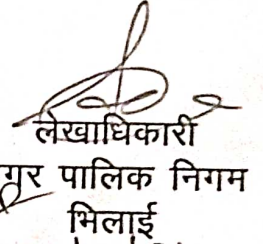 लेखाधिकारी
गर पालिक निगम
भिलाई